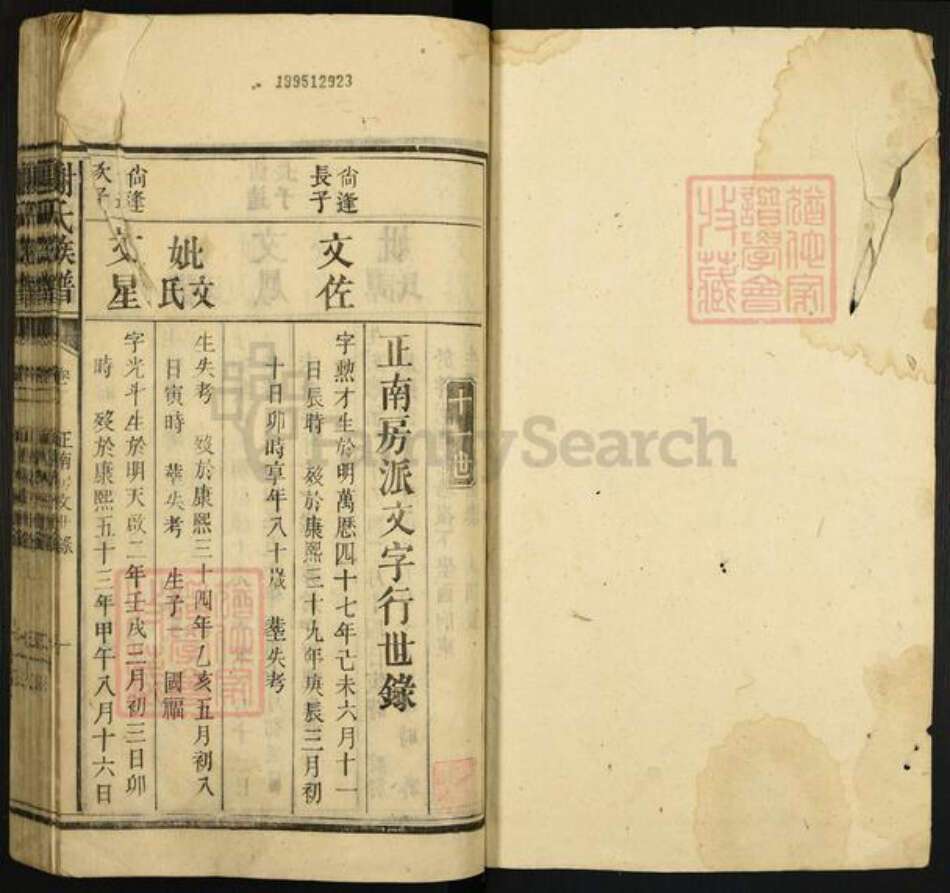 199512923
猶他家
譜學會
收藏
十世
正南房派文字行世錄
尙逢
長子
文佐
字勲才生於明萬歷四十七年己未六月十一
日辰時 歿於康熙三十九年庚辰三月初
十日卯時享年八十歲 塟失考
妣文氏
生失考 歿於康熙三十四年乙亥五月初八
日寅時 塟失考 生子一 國福
尙逢
次子
文星
字光斗生於明天啟二年壬戌二月初三日卯
時 歿於康熙五十三年甲午八月十六日
謝氏族譜
正南房文字錄
猶他家
譜學會
收藏
FamilySearch